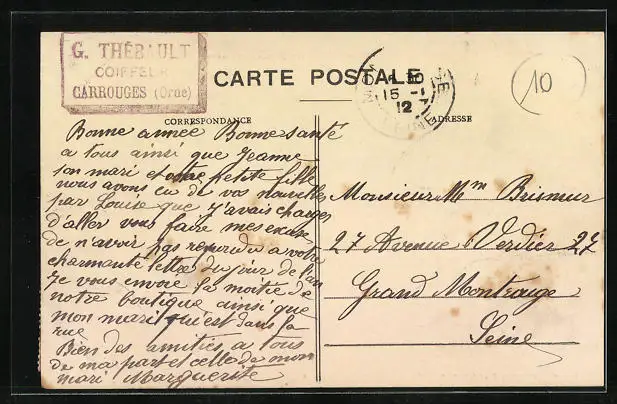 G. THÉBAULT
COIFFEUR
CARROUGES (Orne)
CARTE POSTALE
15 -1
12
10
CORRESPONDANCE
ADRESSE
Bonne année Bonne santé
a tous ainsi que Jeanne
son mari et votre petite fille
nous avons eu de vos nouvelles
par Louise que j'avais chargée
d'aller vous faire mes excuses
de n'avoir pas repondu a votre
charmante lettre du jour de l'an
Je vous envoie la moitié de
notre boutique ainsi que
mon mari qui est dans la
rue
Bien des amitiés a tous
de ma part et celle de mon
mari Marguerite
Monsieur Mm
27 Avenue Verdier 27
Grand Montrouge
Seine